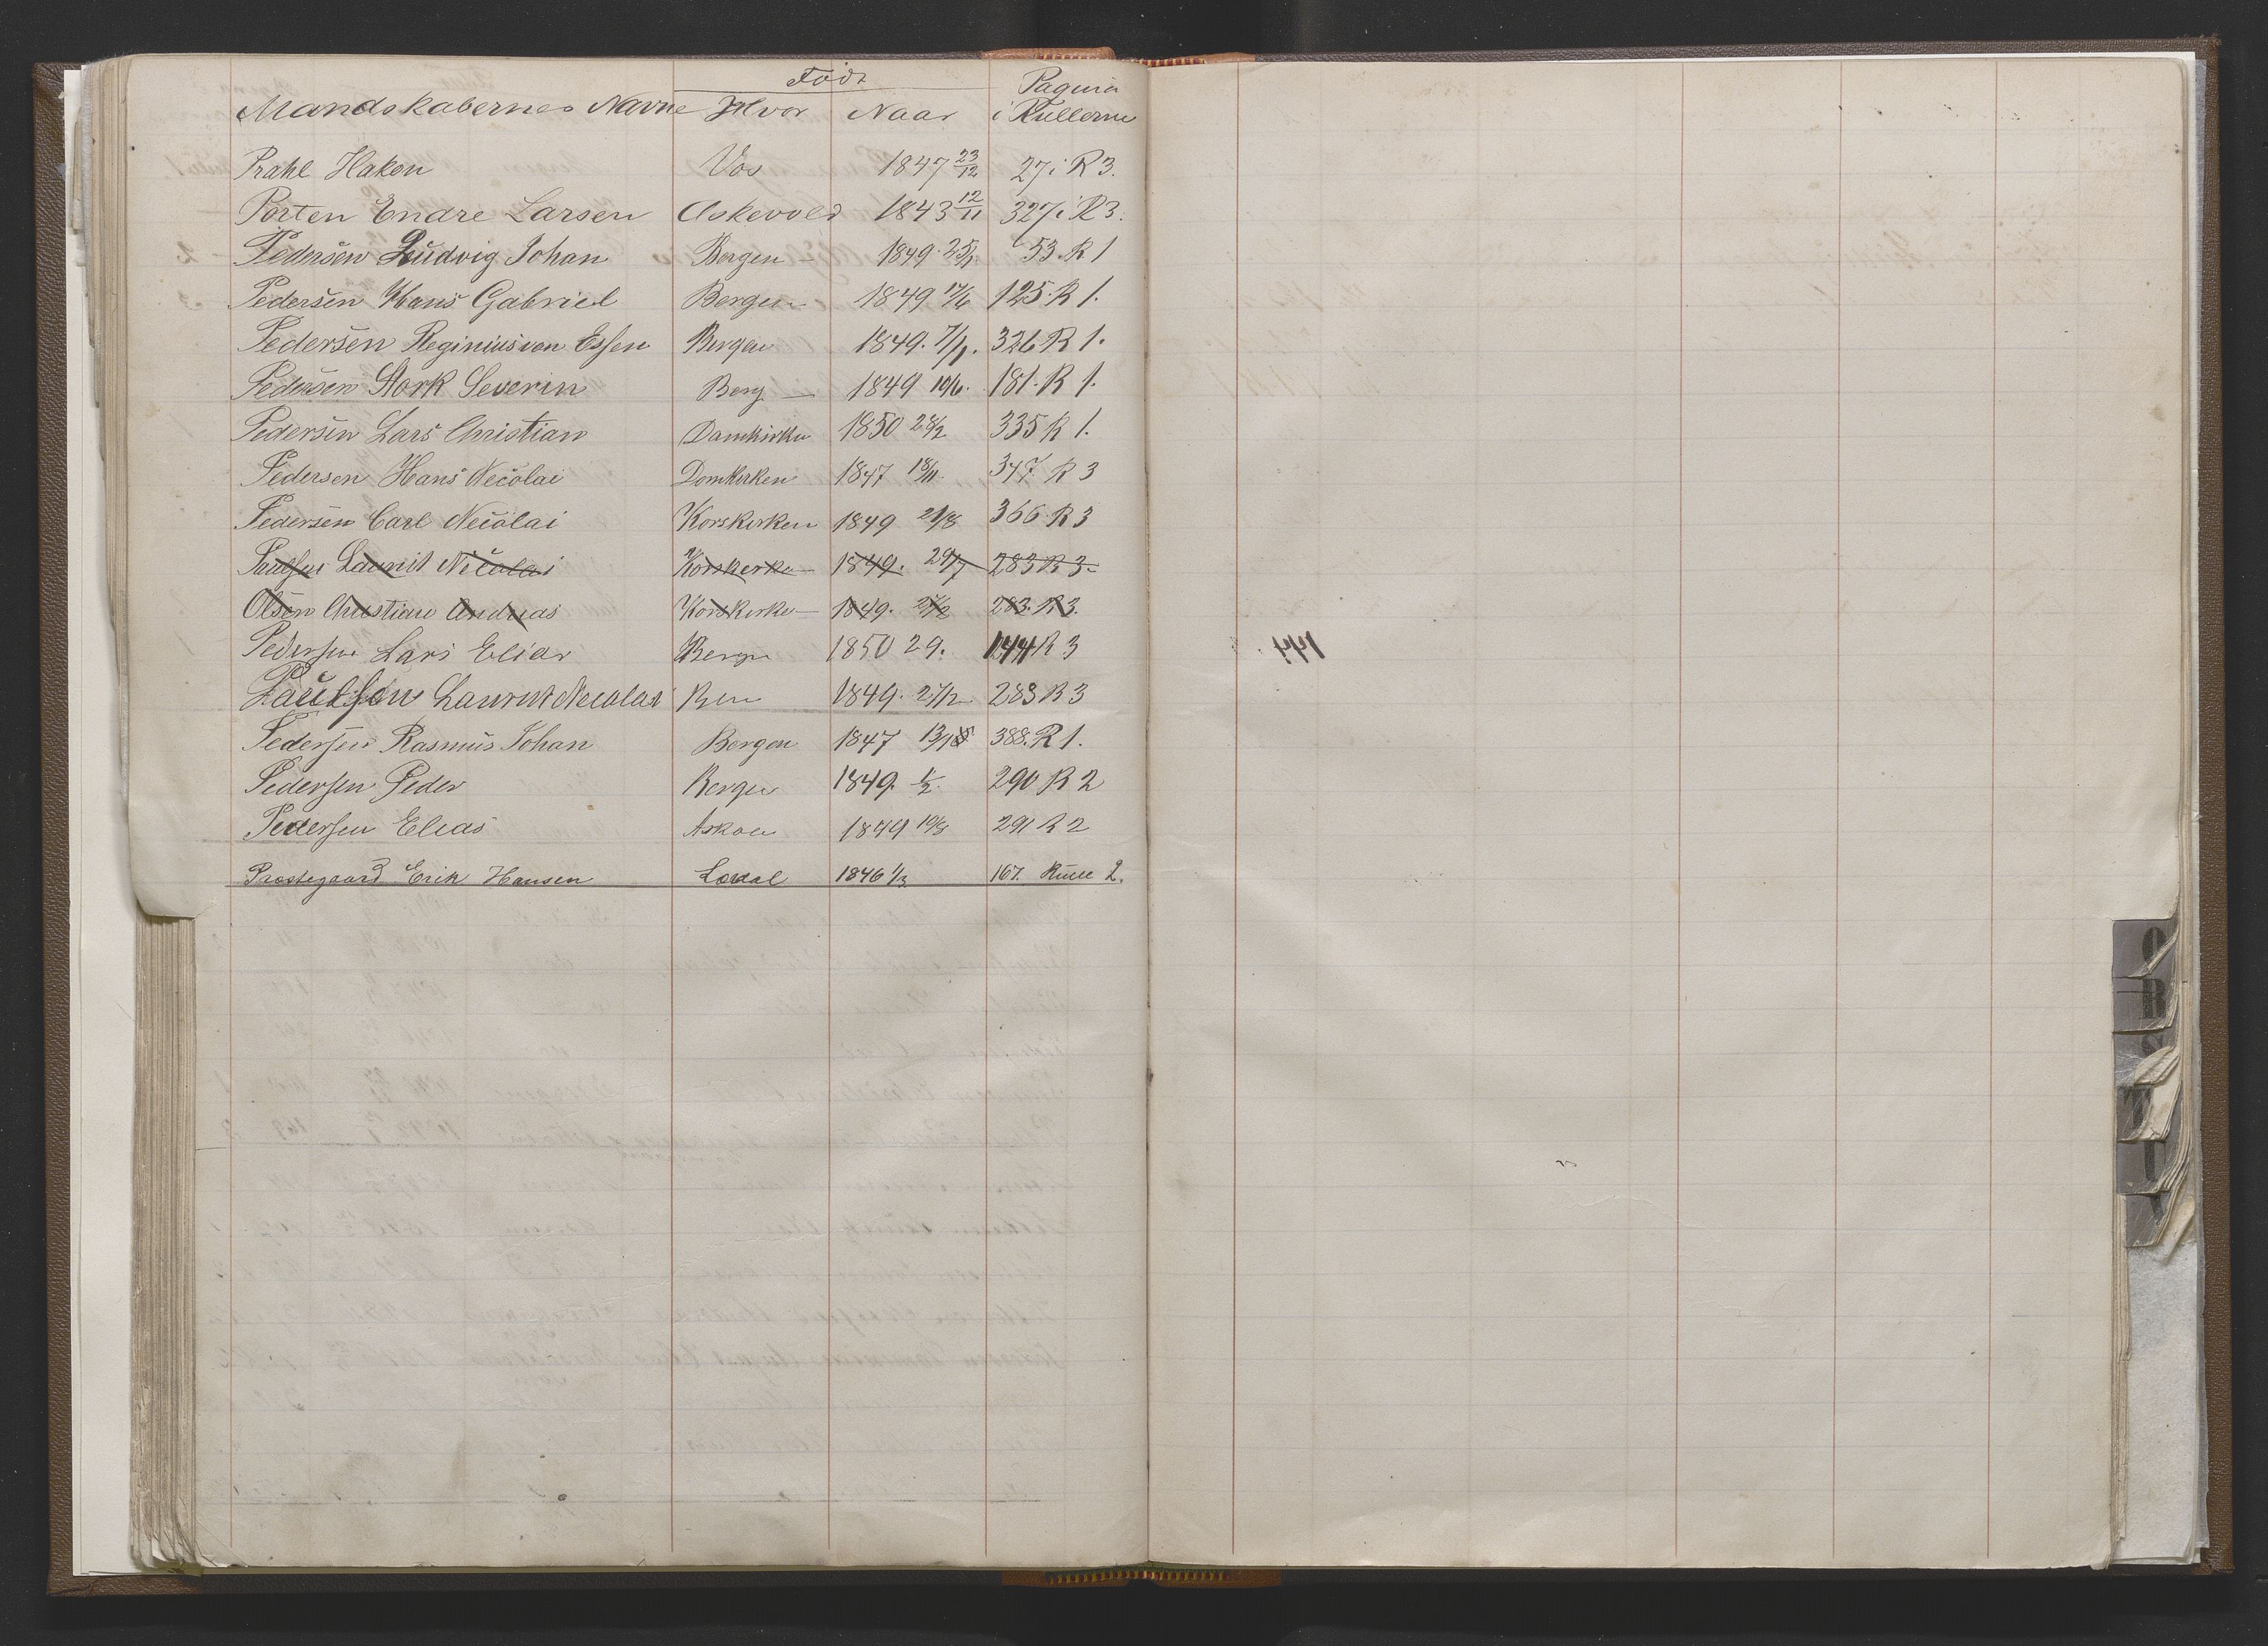 Født
Mandskabernes Navne Hvor Naar Pagina i Rullerne
Prahl Hakon Vos 1847 23/12 27 i R 3.
Porten Endre Larsen Askevold 1843 12/11 327 i R 3.
Pedersen Ludvig Johan Bergen 1849. 53. R 1
Pedersen Hans Gabriel Bergen 1849 17/6 125. R 1.
Pedersen Reginius von Essen Bergen 1849. 7/1. 326 R 1.
Pedersen Stork Severin Berg 1849 10/6. 181. R 1.
Pedersen Lars Christian Domkirken 1850 28/2 335 R 1.
Pedersen Hans Necolai Domkirken 1847 18/11. 347 R 3
Pedersen Carl Necolai Korskirken 1849 21/8 366 R 3
Paulsen Laurit Nicolai Korskerke 1849. 29/7 283 R 3.
Olsen Christian Andreas Korskirke 1849. 283. R 3.
Pedersen Lars Elias Bergen 1850 29. 144 R 3
Paulsen Laurit Necolai Ber 1849. 27/12 283 R 3
Pedersen Rasmus Johan Bergen 1847 388. R 1.
Pedersen Peder Bergen 1849. 1/2. 290 R 2
Pedersen Elias Askøen 1849 10/8 291 R 2
Prestegaard Erik Hansen Lærdal 1846 1/3 167. Rulle 2.
O
R
S
T
U